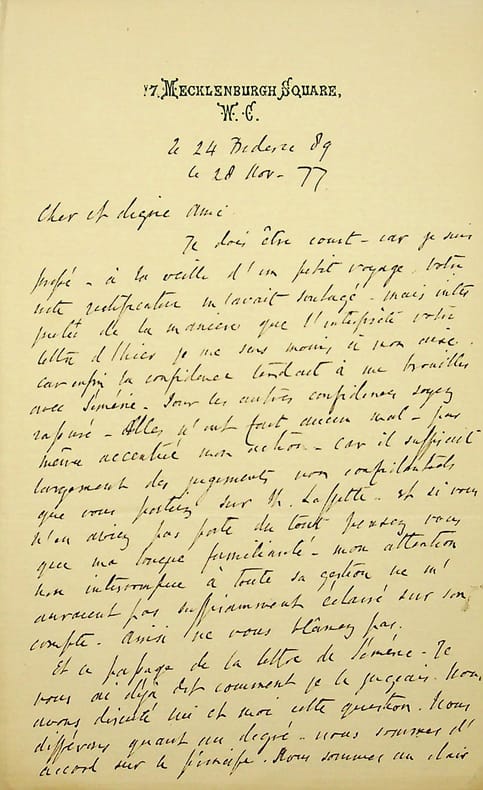 7, MECKLENBURGH SQUARE,
W. C.
le 24 Frédéric 89
le 28 Nov - 77
Cher et digne Ami
Je dois être court - car je suis
pressé - à la veille d'un petit voyage. Votre
note rectificative m'avait soulagé - mais
de la manière que j'interprète votre
lettre d'hier je me sens moins à mon aise.
car enfin la confidence tendait à me brouiller
avec Sémérie. Pour les autres confidences soyez
rassuré - Elles n'ont fait aucun mal - pas
même accentué mon action - car il suffisait
largement des jugements non confidentiels
que vous portiez sur M. Laffitte - et si vous
n'en aviez pas porté du tout pensez vous
que ma longue familiarité - mon attention
non interrompue à toute sa gestion ne m'
auraient pas suffisamment éclairé sur son
compte. Ainsi ne vous blâmez pas.
Et ce passage de la lettre de Sémérie - Je
vous ai déjà dit comment je le jugeais. Nous
avons discuté lui et moi cette question. Nous
différons quant au degré - nous sommes d'
accord sur le principe. Nous sommes au clair